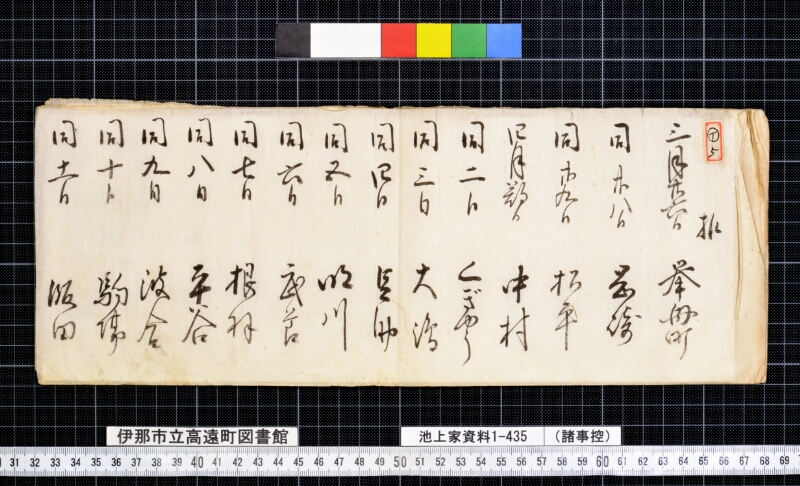 ㋐5
三月廿六日 挙母町
同廿八日 岡崎
同廿九日 松平
四月朔日 中村
同二日
同三日 大沼
同四日 足助
同五日 明川
同六日 武節
同七日 根羽
同八日 平谷
同九日 波合
同十日 駒場
同十一日 飯田
伊那市立高遠町図書館
池上家資料1-435 (諸事控)
31 32 33 34 35 36 37 38 39 40 41 42 43 44 45 46 47 48 49 50 51 52 53 54 55 56 57 58 59 60 61 62 63 64 65 66 67 68 69